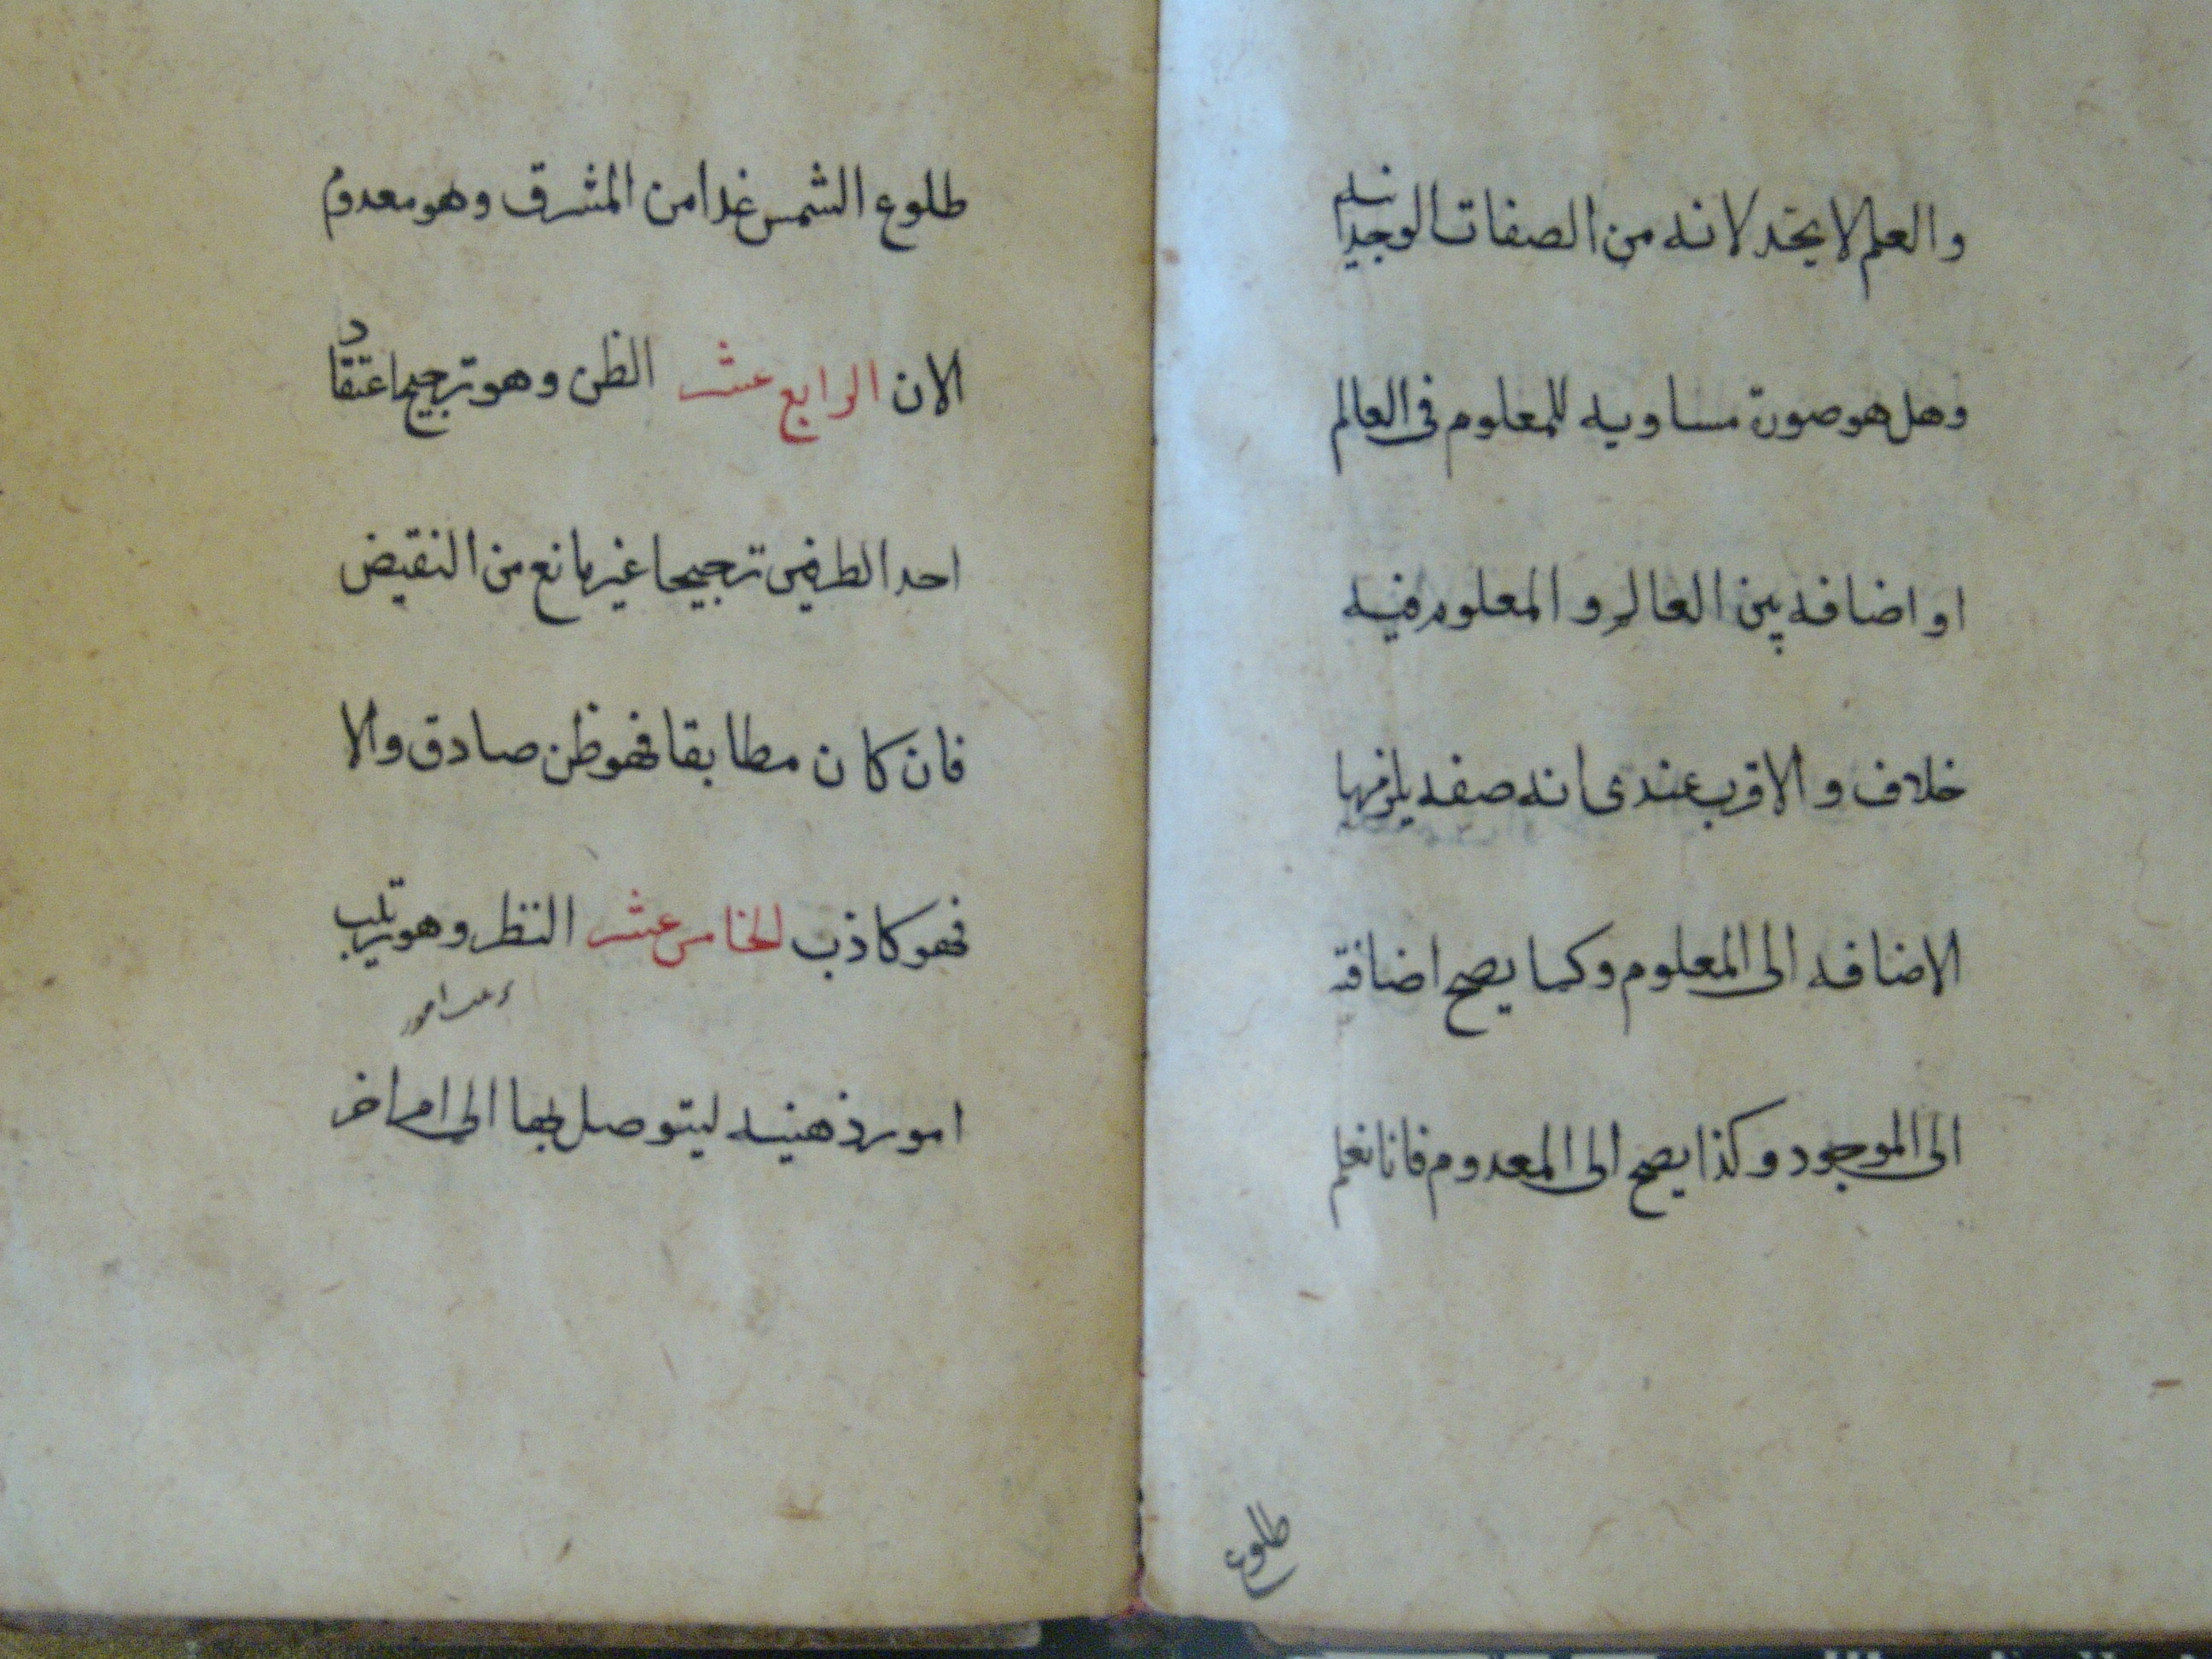 والعلم لا يحد لانه من الصفات الوجدانيه
وهل هو صورة مساويه للمعلوم فى العالم
او اضافه بين العالم و المعلوم فيه
خلاف و الاقرب عندى انه صفه يلزمها
الاضافه الى المعلوم وكما يصح اضافته
الى الموجود وكذا يصح الى المعدوم فانا نعلم
طلوع
طلوع الشمس غدا من المشرق وهو معدوم
الان الرابع عشر الظن وهو ترجيح اعتقاد
احد الطرفين ترجيحا غير مانع من النقيض
فان كان مطابقا فهو ظن صادق والا
فهو كاذب الخامس عشر النظر وهو ترتيب
امور ذهنيه ليتوصل بها الى امر اخر